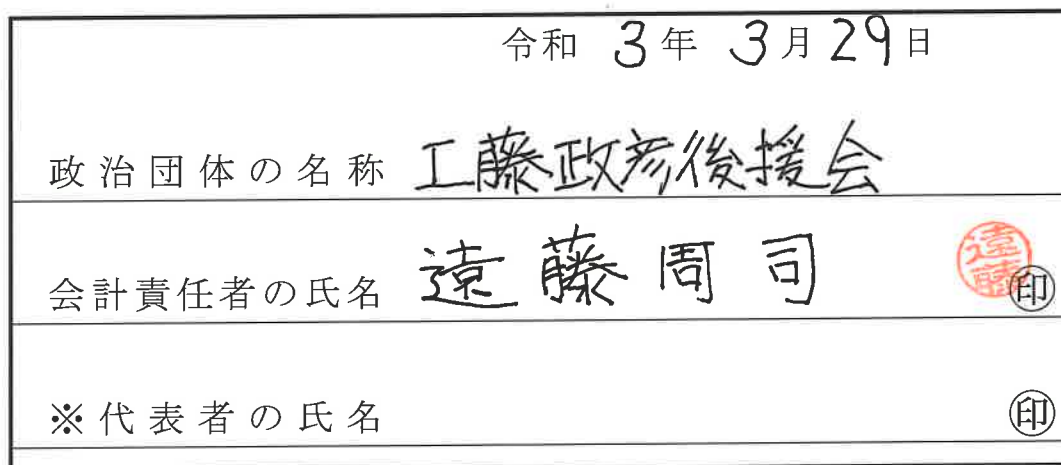 令和 3年 3月29日
政治団体の名称 工藤政彦後援会
会計責任者の氏名 遠藤周司 遠藤 ㊞
※代表者の氏名 ㊞